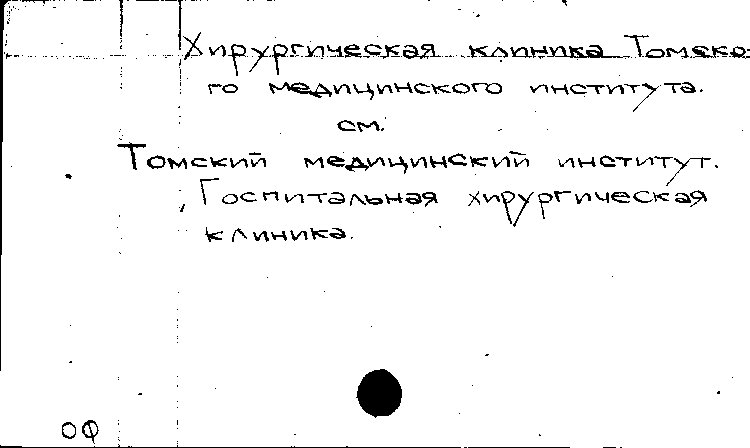 Хирургическая клиника Томско-
го медицинского института.
см.
Томский медицинский институт.
Госпитальная хирургическая
клиника.
ОФ